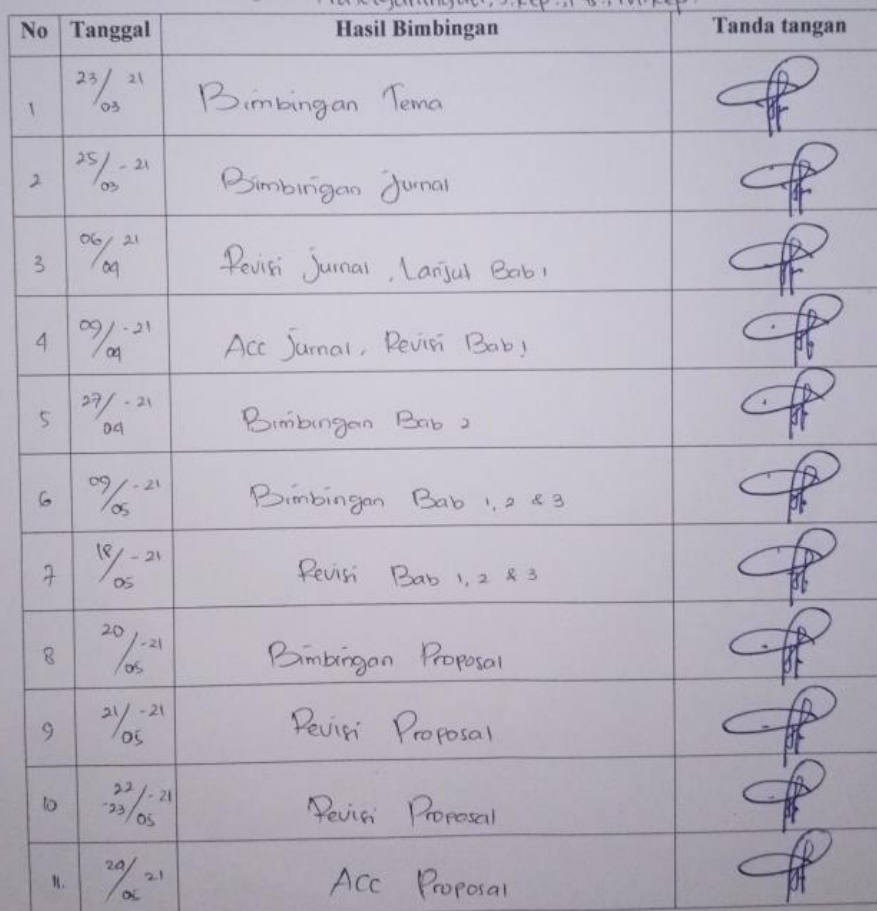 No Tanggal Hasil Bimbingan Tanda tangan
1 23/03 21 Bimbingan Tema
2 25/03 - 21 Bimbingan Jurnal
3 06/04 21 Revisi Jurnal, Lanjut Bab 1
4 09/04 - 21 Acc Jurnal, Revisi Bab 1
5 27/04 - 21 Bimbingan Bab 2
6 09/05 - 21 Bimbingan Bab 1, 2 & 3
7 18/05 - 21 Revisi Bab 1, 2 & 3
8 20/05 - 21 Bimbingan Proposal
9 21/05 - 21 Revisi Proposal
10 22/05 - 21 -23 Revisi Proposal
11. 21 ACC Proposal